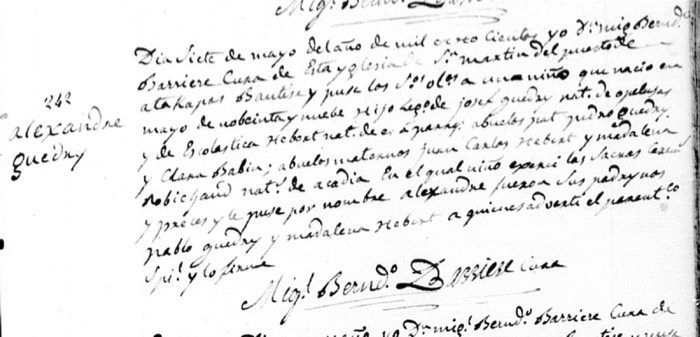 Migl. Bernd. Barriere
Dia Siete de mayo del año de mil ocho cientos yo Dn. mig. Bernd.
Barriere Cura de Esta yglesia de Sn. martin del puesto de
atakapas Bautise y puse los Stos. oleos a un niño que nacio en
mayo de nobeinta y nuebe Hijo Legmo. de josef guedry nat. de opelusas
y de Escolastica Hebert nat. de abuelos pat. pedro guedry
y Clara Babin; abuelos maternos juan Carlos Hebert y madalena
Robichaud nats. de acadia En el qual niño exerci las Sacras Cerem.
y preces y le puse por nombre alexandre fueron Sus padrynos
pablo guedry y madalena Hebert a quienes adverti el parentco.
Spil. y lo firme
Migl. Berndo. Barriere Cura
242
alexandre
guedry
yo Dn. migl. Berndo. Barriere Cura de